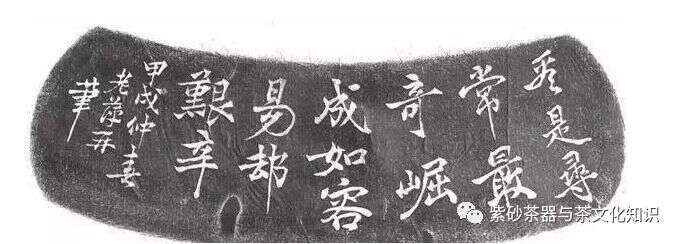 看是尋
常最
奇崛
成如容
易却
艱辛
甲戌仲春
老
筆
紫砂茶器与茶文化知识